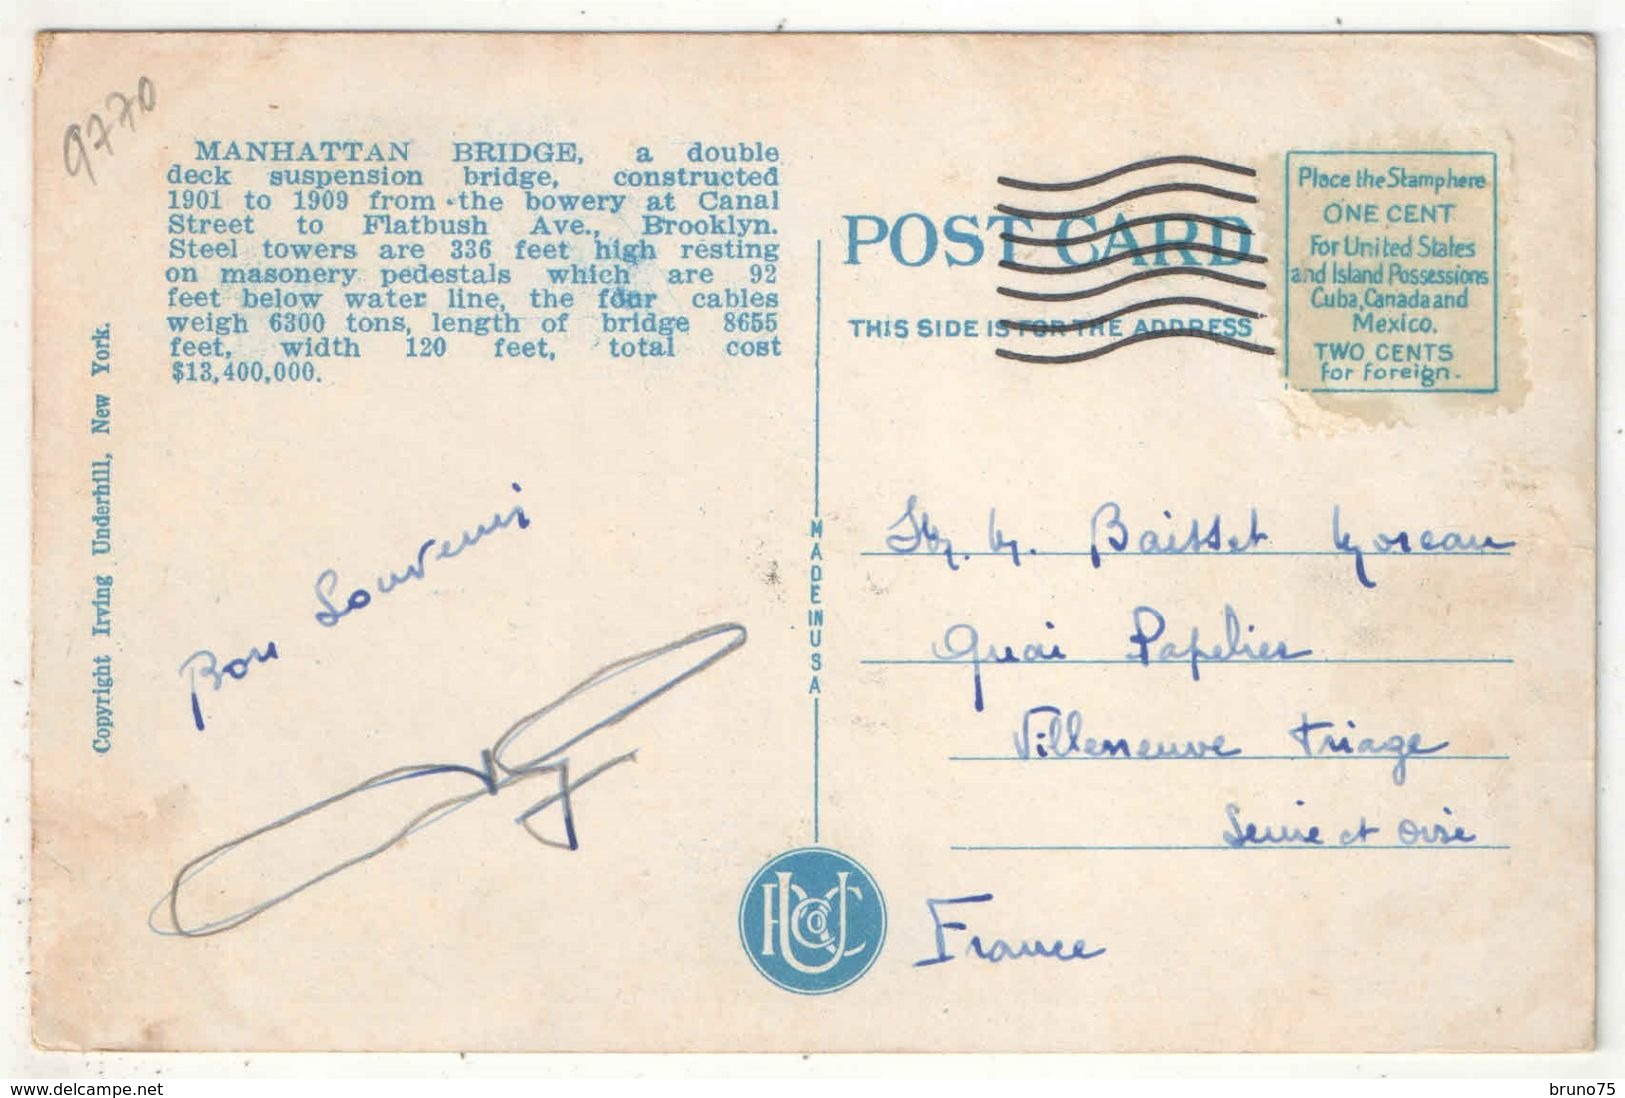 9770
MANHATTAN BRIDGE, a double
deck suspension bridge, constructed
1901 to 1909 from the bowery at Canal
Street to Flatbush Ave., Brooklyn.
Steel towers are 336 feet high resting
on masonery pedestals which are 92
feet below water line, the four cables
weigh 6300 tons, length of bridge 8655
feet, width 120 feet, total cost
$13,400,000.
Copyright Irving Underhill, New York.
Bon Souvenir
MADE IN USA
POST CARD
THIS SIDE IS FOR THE ADDRESS
Place the Stamp here
ONE CENT
For United States
and Island Possessions
Cuba, Canada and
Mexico.
TWO CENTS
for foreign.
Baisset Moreau
Quai Papelier
Villeneuve triage
Seine et oise
France
delcampe.net
bruno75